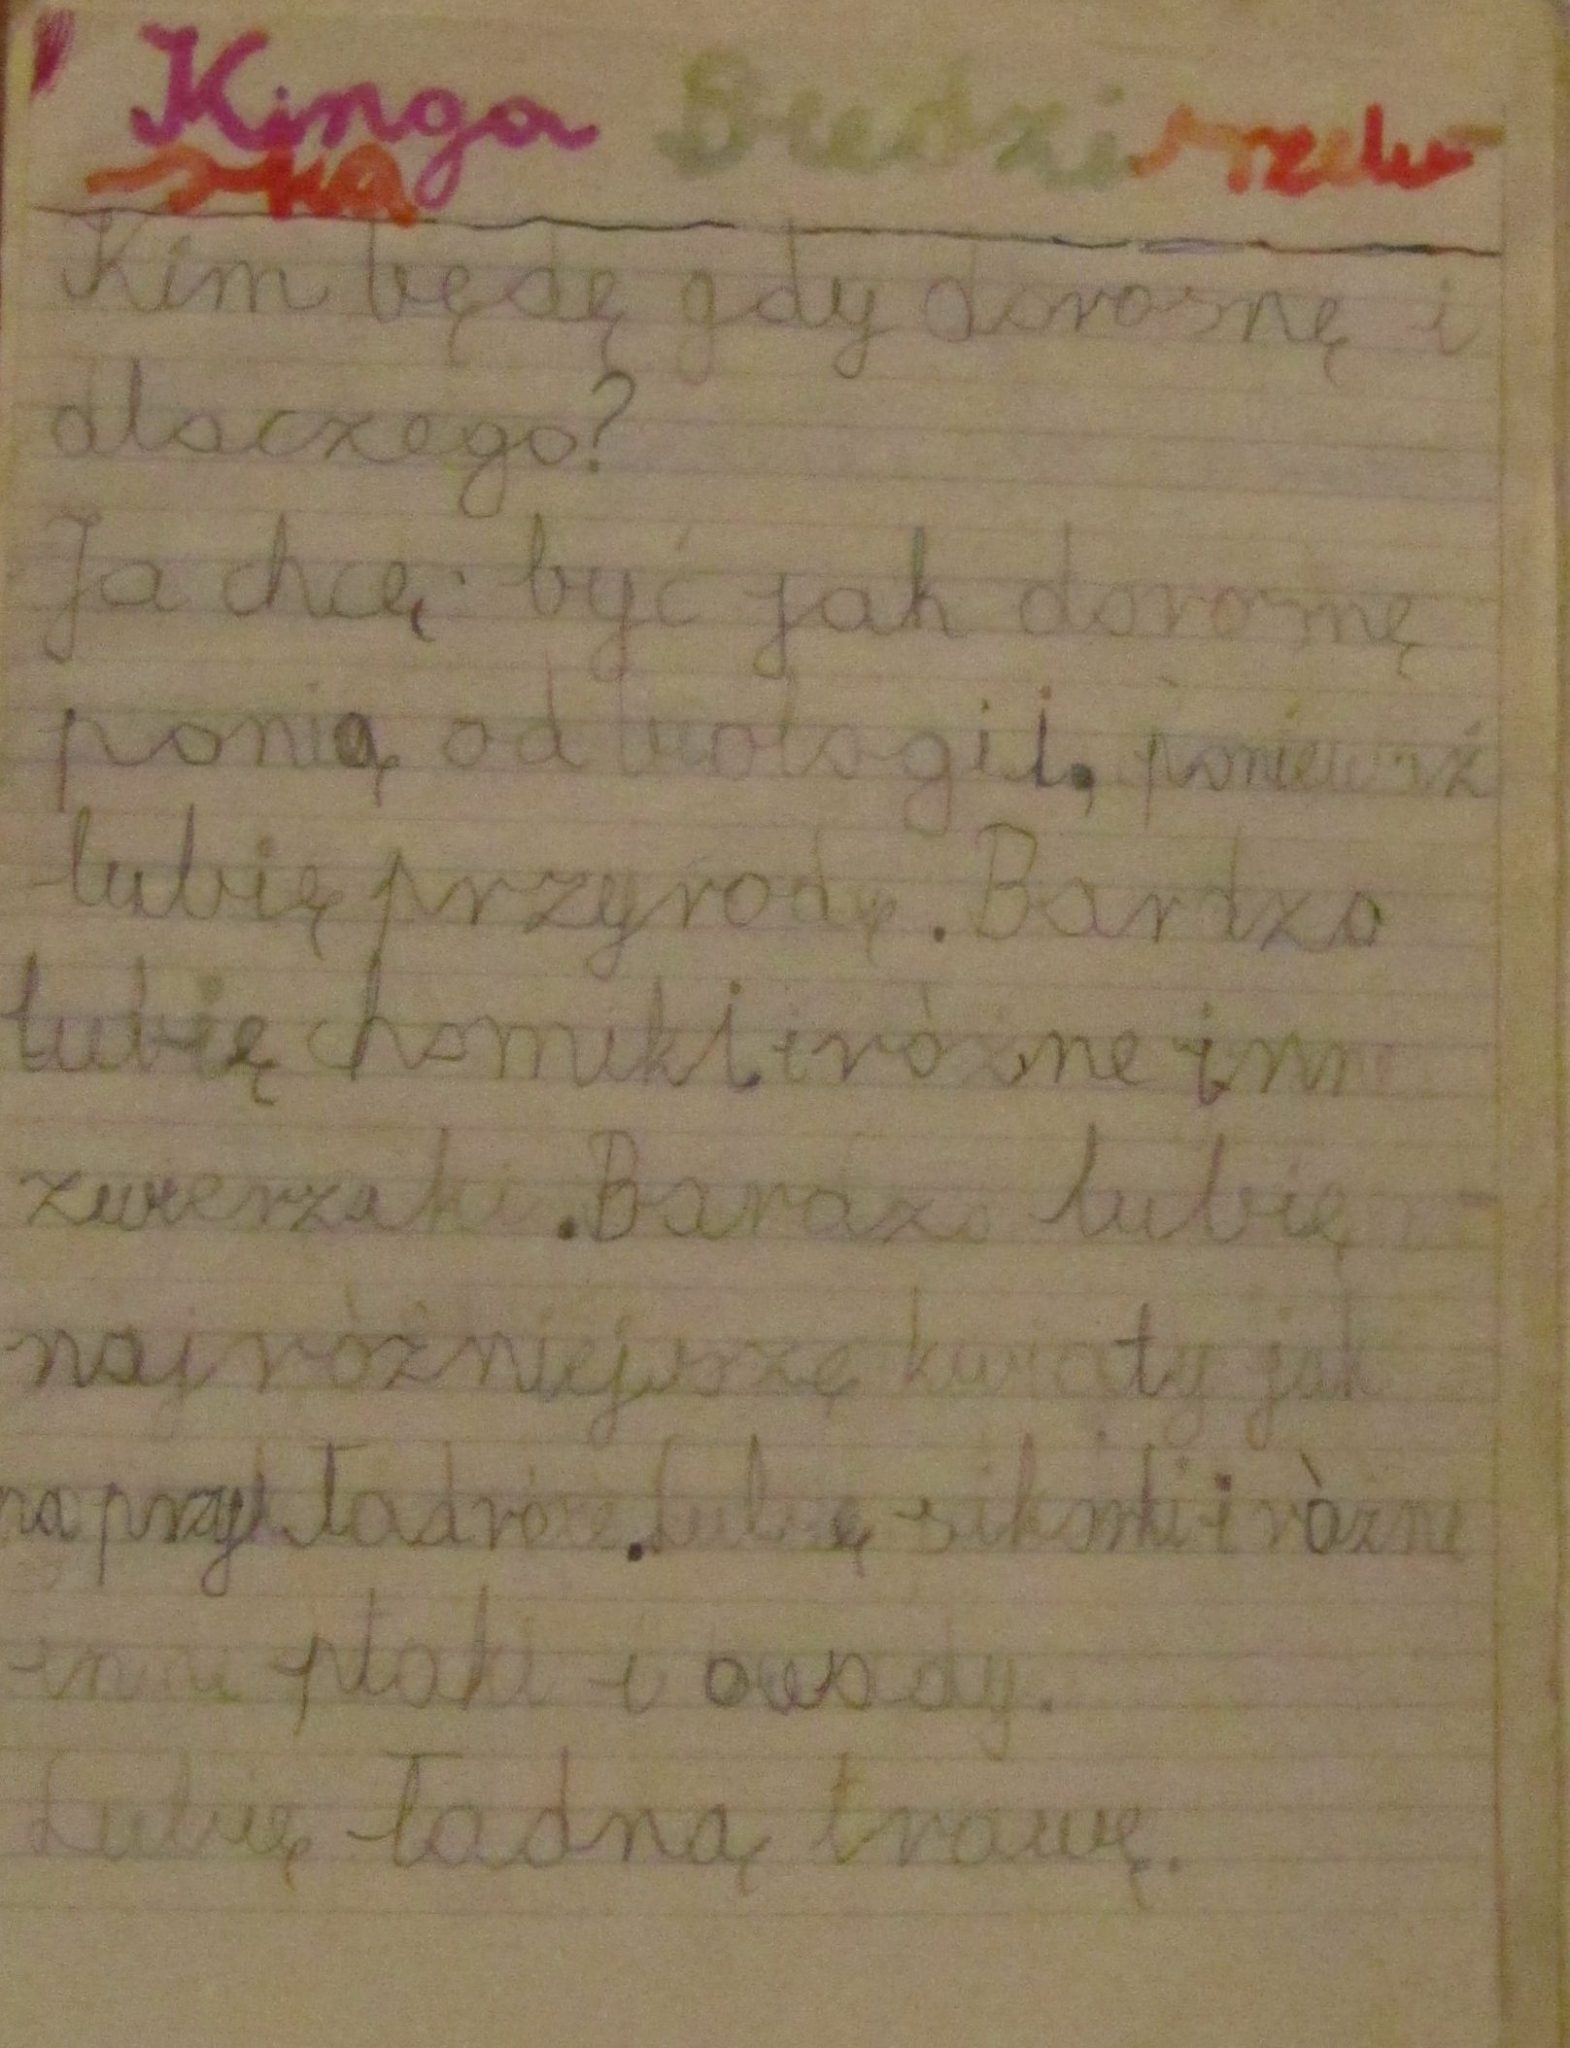 Kinga Budziszew
-ska
Kim będę gdy dorosnę i
dlaczego?
Ja chcę być jak dorosnę
panią od biologii, ponieważ
lubię przyrodę. Bardzo
lubię chomiki i różne inne
zwierzaki. Bardzo lubię
najróżniejszę kwiaty jak
na przykład róże. Lubię sikorki i różne
inne ptaki i owady.
Lubię ładną trawę.